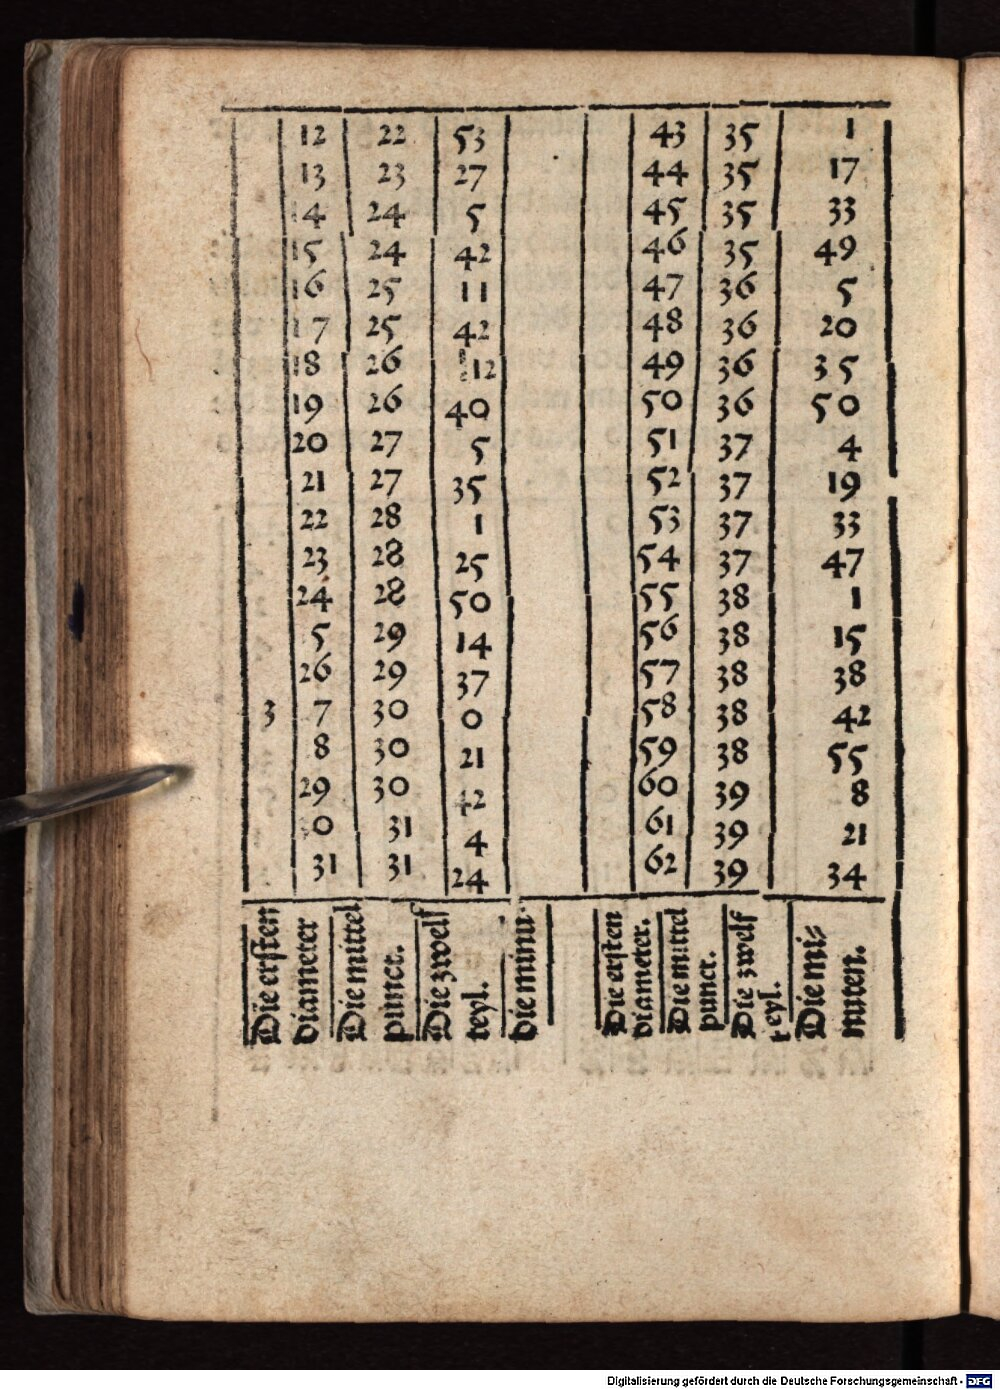 12 22 53 43 35 1
13 23 27 44 35 17
14 24 5 45 35 33
15 24 42 46 35 49
16 25 11 47 36 5
17 25 42 48 36 20
18 26 12 49 36 35
19 26 40 50 36 50
20 27 5 51 37 4
21 27 35 52 37 19
22 28 1 53 37 33
23 28 25 54 37 47
24 28 50 55 38 1
5 29 14 56 38 15
26 29 37 57 38 38
3 7 30 0 58 38 42
8 30 21 59 38 55
29 30 42 60 39 8
0 31 4 61 39 21
31 31 24 62 39 34
Die ersten
diameter
Die mittel
punct.
Die zwelf
teyl.
die minu.
Die ersten
diameter.
Die mittel
punct.
Die zwelf
teyl.
Die mi⸗
nuten.
Digitalisierung gefördert durch die Deutsche Forschungsgemeinschaft - DFG